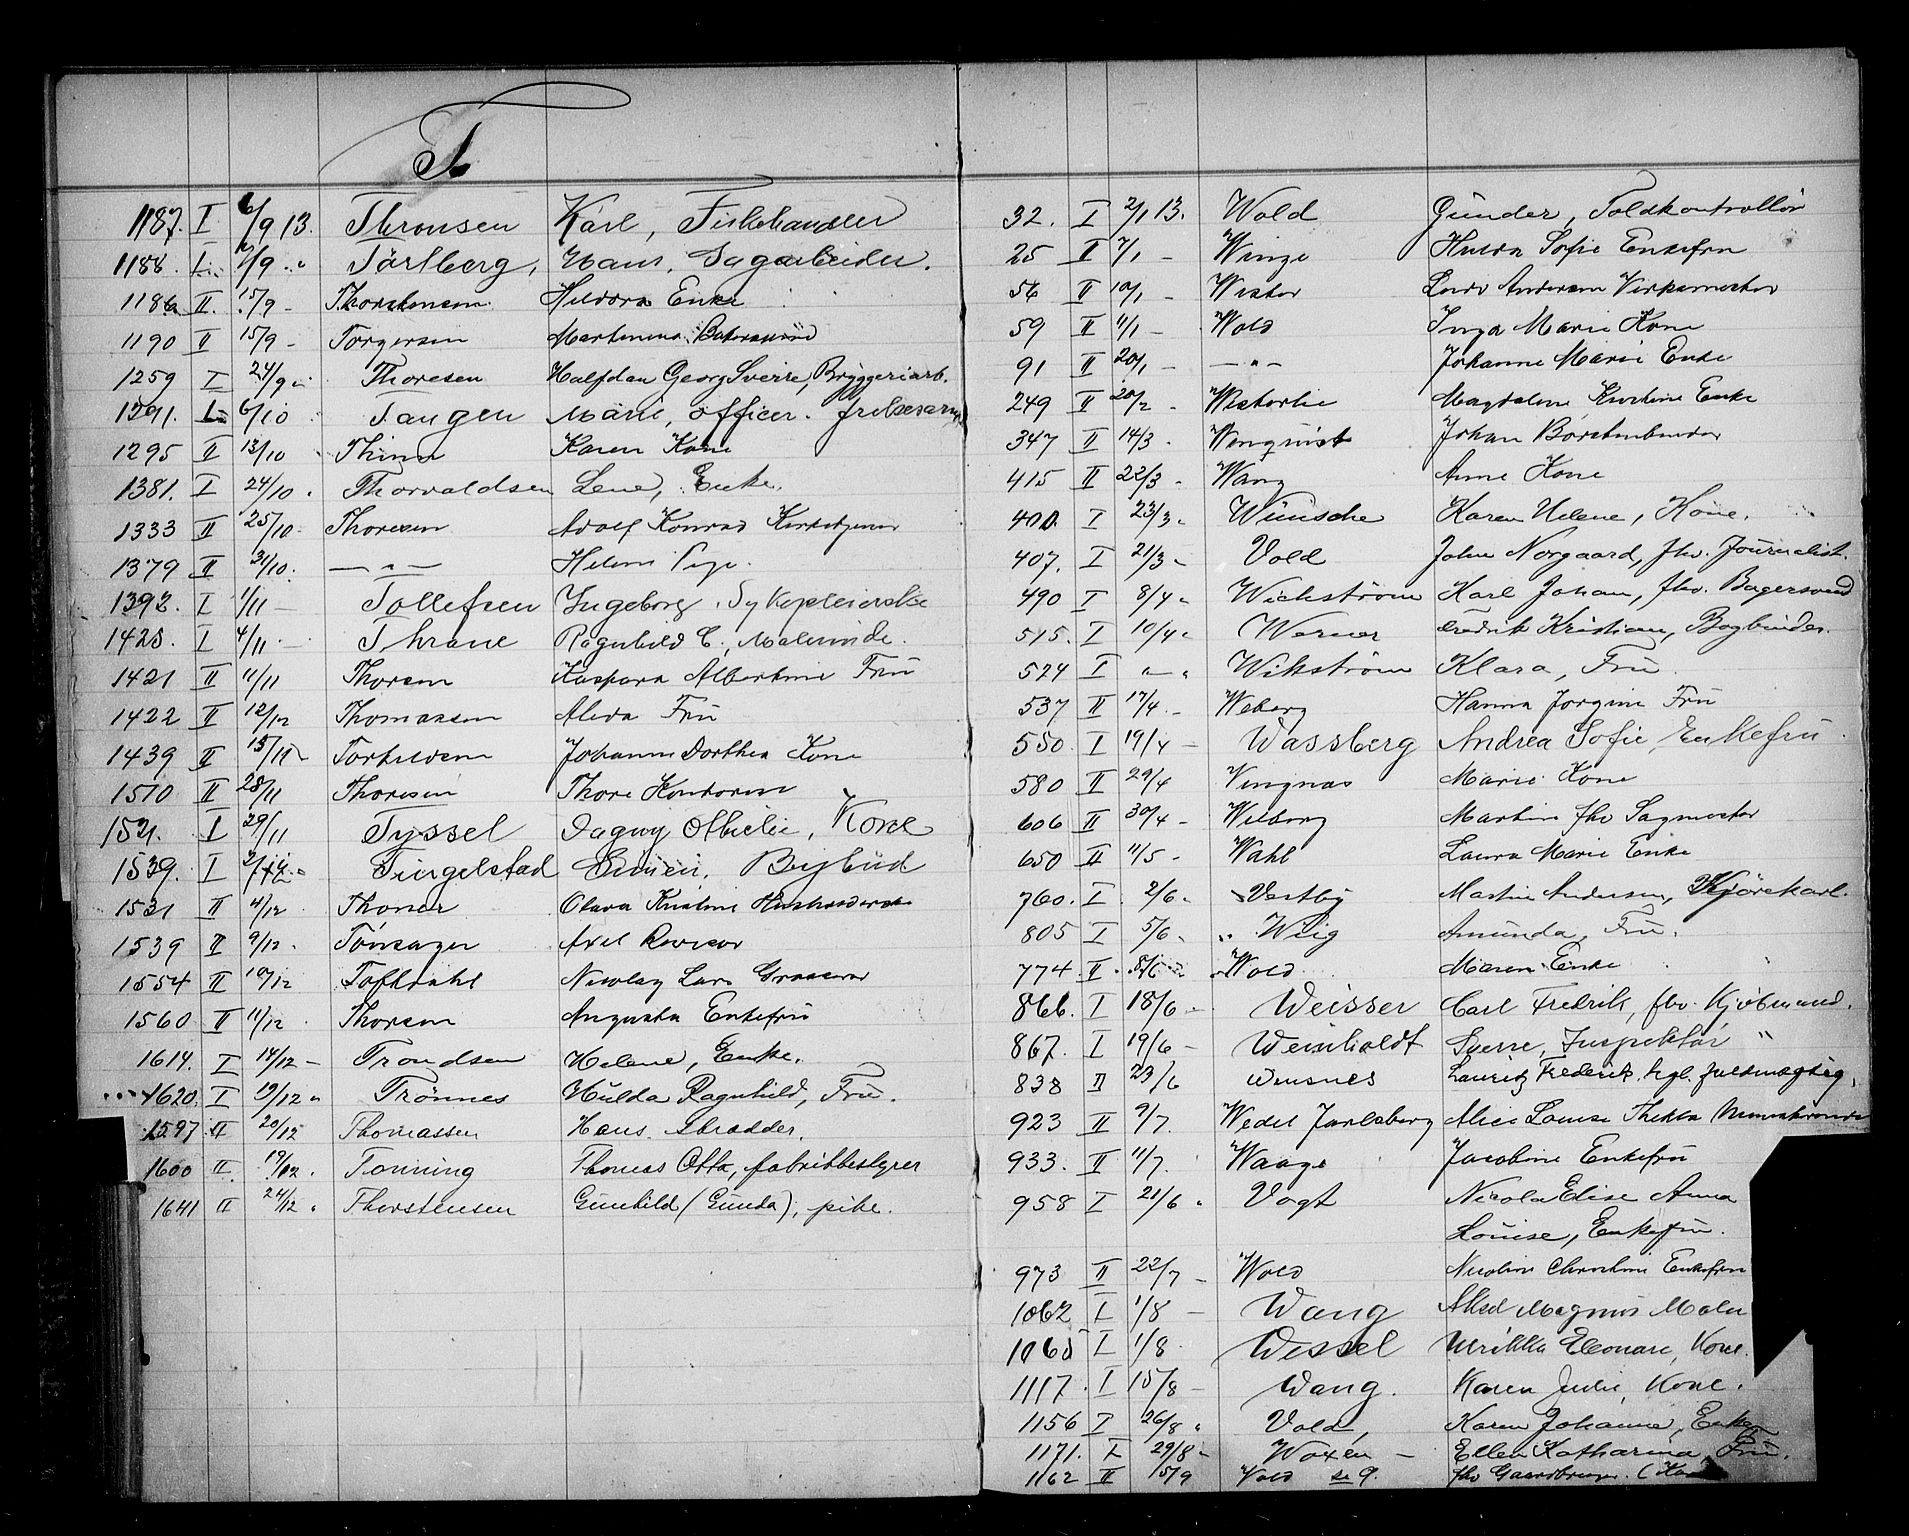 T
1187. I 6/9 13. Thronsen Karl, Fiskehandler
1188. I 7/9 " Tårlberg, Hans, Sagarbeider.
1186 II 15/9 - Thorstensen Hildora Enke
1190 II 15/9 - Torgersen
1259 I 24/9 " Thoresen Halfdan Georg Sverre, Bryggeriarb.
1291. I 6/10 Tangen Marie, officer. frelsesarm
1295 II 13/10 Karen Kone
1381. I 24/10 " Thorvaldsen Lene, Enke.
1333 II 25/10 - Thoresen Adolf Konrad
1379 II 31/10. — " — Helene Pige.
1392. I 1/11 — Tollefsen Ingeborg, Sykepleierske
1425. I 4/11 - Thrane Ragnhild C., Malerinde.
1421 II 11/11 Thoresen Kaspara Albertine Fru
1422 II 12/12 Thomassen Alida Fru
1439 II 15/11 - Torkildsen Johanne Dorthea Kone
1510 II 28/11 Thoresen Thore Kontorist
1521. I 29/11 Tyssel Dagny Othelie, Kone
1539. I 2/12 " Tingelstad Simen, Bybud
1531 II 4/12 Thoner Olava Kristine
1539 II 9/12 - Tønsager Axel Revisor
1554 II 10/12 Toftdahl Nicolay Lars Grosserer
1560 II 11/12 Thoresen Augusta Enkefru
1614. I 14/12 — Trondsen Helene, Enke.
1620. I 19/12 " Trønnes Hulda Ragnhild, Fru.
1597 II 20/12 Thomassen Hans. skrædder.
1600 II 19/12 . Tonning Thomas Otto, fabrikbestyrer
1641 II 24/12 " Thorstensen Gunhild (Gunda), pike.
32. I 2/1 13. Wold Gunder, Toldkontrollør
25 II 7/1 - Winge Hulda Sofie Enkefru
56 II 10/1 - Wister Andersen Verksmester
59 II 11/1 - Wold Inga Marie Kone
91 II 20/1 - — " — Johanne Marie Enke
249 II 20/2 - Westerlie Magdalene Kirstine Enke
347 II 14/3 . Wenquist Johan Børstenbinder
415 II 22/3 - Wang Anne Kone
400. I 23/3 " Wünsche Karen Helene, Kone.
407. I 21/3 " Vold John Norgaard, fhv. Journalist.
490 I 8/4 " Wickstrøm Karl Johan, fhv. Bagersvend
515. I 10/4 " Werner Fredrik Kristian, Bogbinder.
524 I " " Wikstrøm Klara, Fru.
537 II 17/4 - Weberg Hanna Jørgine Fru
550. I 19/4 - Wassberg Andrea Sofie, Enkefru.
580 II 29/4 Vingnæs Marie Kone
606 II 30/4 - Weiberg Martin fhv Sagmester
650 II 11/5 - Wahl Laura Marie Enke
760. I 2/6 " Vestby Martin Andersen, Kjørekarl.
805 I 5/6 " Wiig Amunda, Fru.
774 II 8/6 - Wold Maren Enke
866. I 18/6 - Weisser Carl Fredrik, fhv. Kjøbmand.
867. I 19/6 - Weinholdt Sverre, Inspektør "
838 II 23/6 Winsnes Lauritz Frederik, kgl. fuldmægtig,
923 II 9/7. Wedel Jarlsberg Alice Louise Thekla
933. II 11/7. Waage Jacobine Enkefru
958 I 21/6 " Vogt Nicola Elise Anna
Louise, Enkefru.
973 II 22/7 - Wold Nicoline Christine Enkefru
1062 I 1/8 - Wang Aksel Magnus Maler
1065 I 1/8 - Wessel Ulrikka Eleonare, Kone.
1117. I 15/8 - Wang. Karen Julie, Kone.
1156 I 26/8 " Vold, Karen Johanne, Enke
1171. I 29/8 " Waxén - Ellen Katharina, Fru.
1162 II 5/9 Vold se 9. fhv Gaardbruger.